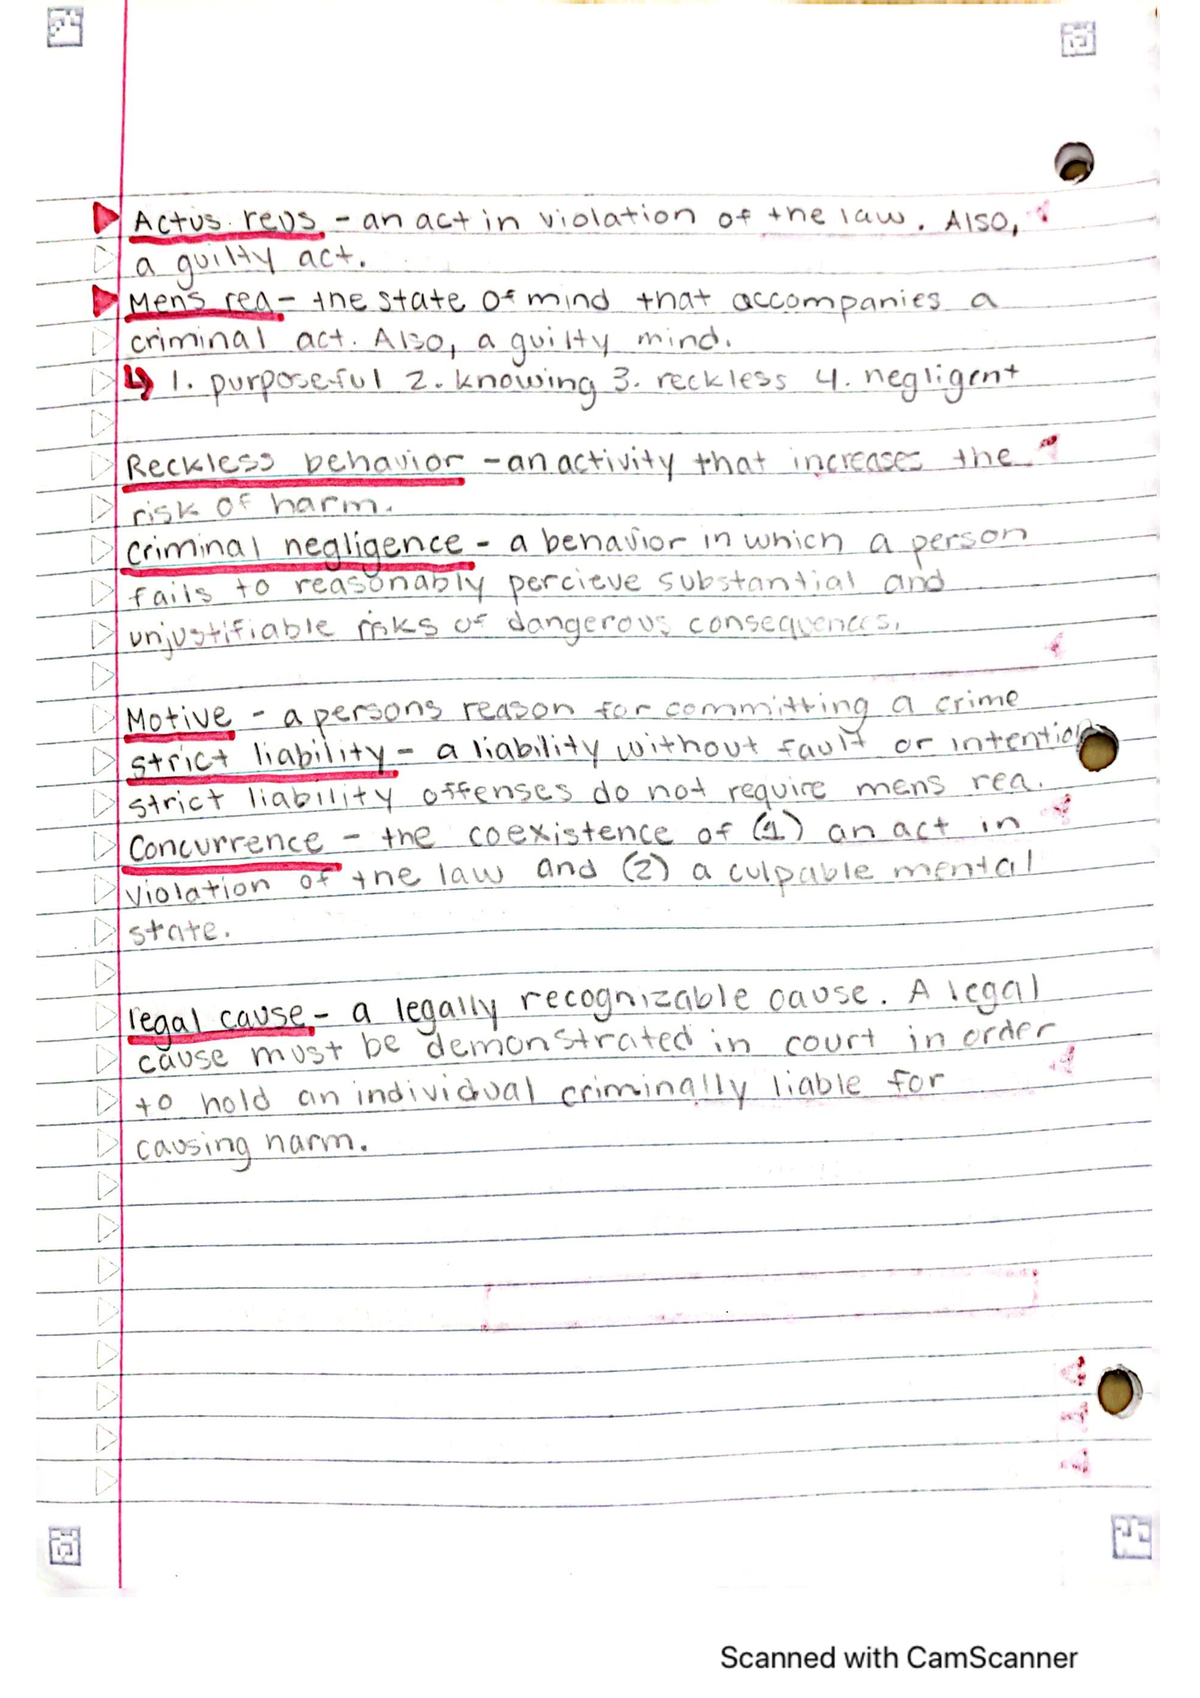 Actus reus - an act in violation of the law. Also,
a guilty act.
Mens rea - the state of mind that accompanies a
criminal act. Also, a guilty mind.
↳ 1. purposeful 2. knowing 3. reckless 4. negligent
Reckless behavior - an activity that increases the
risk of harm.
Criminal negligence - a behavior in which a person
fails to reasonably percieve substantial and
unjustifiable risks of dangerous consequences.
Motive - a persons reason for committing a crime
strict liability - a liability without fault or intention
strict liability offenses do not require mens rea.
Concurrence - the coexistence of (1) an act in
violation of the law and (2) a culpable mental
state.
legal cause - a legally recognizable cause. A legal
cause must be demonstrated in court in order
to hold an individual criminally liable for
causing harm.
Scanned with CamScanner